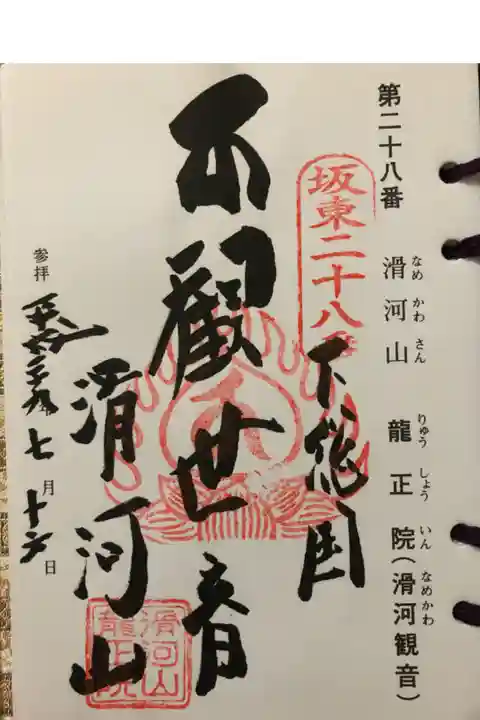 第二十八番 滑河山 龍正院(滑河観音)
なめ かわ さん りゅう しょう いん なめかわ
坂東二十八番
下総国
觀世音
滑河山
滑河山
龍正院
参拝 平成二十九年七月十六日